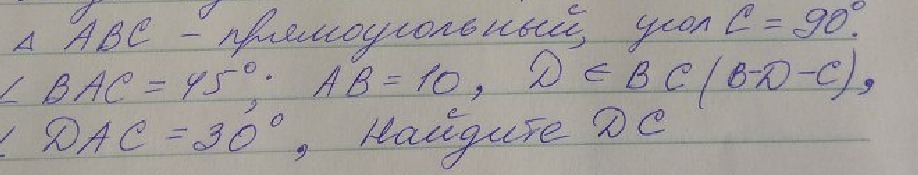 △ ABC – прямоугольный, угол C = 90°.
∠ BAC = 45°; AB = 10, D ∈ BC (B-D-C),
∠ DAC = 30°, Найдите DC